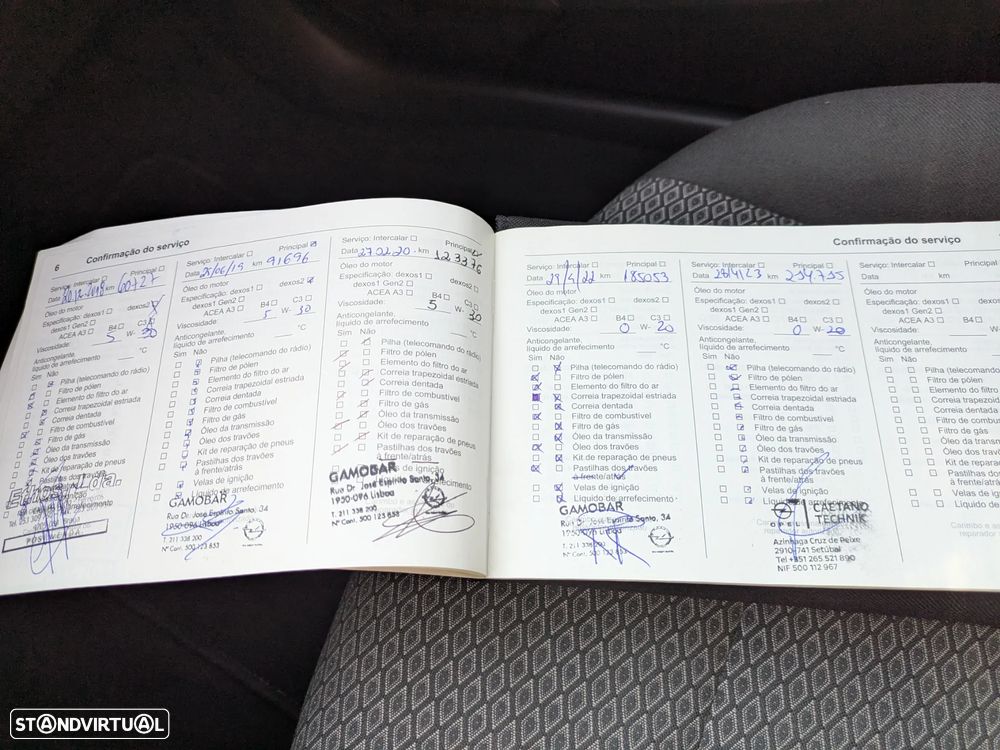 6
Confirmação do serviço
Serviço: Intercalar
Principal
Data 20.12.2018 km 60727
Óleo do motor
Especificação: dexos1
dexos2
dexos1 Gen2
ACEA A3
B4
C3
Viscosidade: 5 W- 30
Anticongelante,
líquido de arrefecimento
°C
Sim Não
Pilha (telecomando do rádio)
Filtro de pólen
Elemento do filtro do ar
Correia trapezoidal estriada
Correia dentada
Filtro de combustível
Filtro de gás
Óleo da transmissão
Óleo dos travões
Kit de reparação de pneus
POS VENDA
Principal
Data 25/06/19 km 91696
Óleo do motor
Especificação: dexos1
dexos2
dexos1 Gen2
ACEA A3
B4
C3
Viscosidade: 5 W- 30
Anticongelante,
líquido de arrefecimento
°C
Sim Não
Pilha (telecomando do rádio)
Filtro de pólen
Elemento do filtro do ar
Correia trapezoidal estriada
Correia dentada
Filtro de combustível
Filtro de gás
Óleo da transmissão
Óleo dos travões
Kit de reparação de pneus
Pastilhas dos travões
à frente/atrás
Velas de ignição
Líquido de arrefecimento
GAMOBAR
Rua Dr. José Espírito Santo, 34
1950-096 Lisboa
T. 211 338 200
Nº Cont. 500 123 853
Serviço: Intercalar
Principal
Data 27.02.20 km 123376
Óleo do motor
Especificação: dexos1
dexos2
dexos1 Gen2
ACEA A3
B4
C3
Viscosidade: 5 W- 30
Anticongelante,
líquido de arrefecimento
°C
Sim Não
Pilha (telecomando do rádio)
Filtro de pólen
Elemento do filtro do ar
Correia trapezoidal estriada
Correia dentada
Filtro de combustível
Filtro de gás
Óleo da transmissão
Óleo dos travões
Kit de reparação de pneus
Pastilhas dos travões
à frente/atrás
Velas de ignição
GAMOBAR
Rua Dr. José Espírito Santo, 34
1950-096 Lisboa
T. 211 338 200
Nº Cont. 500 123 853
Confirmação do serviço
Serviço: Intercalar
Principal
Data 29/4/22 km 185053
Óleo do motor
Especificação: dexos1
dexos2
dexos1 Gen2
ACEA A3
B4
C3
Viscosidade: 0 W- 20
Anticongelante,
líquido de arrefecimento
°C
Sim Não
Pilha (telecomando do rádio)
Filtro de pólen
Elemento do filtro do ar
Correia trapezoidal estriada
Correia dentada
Filtro de combustível
Filtro de gás
Óleo da transmissão
Óleo dos travões
Kit de reparação de pneus
Pastilhas dos travões
à frente/atrás
Velas de ignição
Líquido de arrefecimento
GAMOBAR
Rua Dr. José Espírito Santo, 34
1950-096 Lisboa
T. 211 338 200
Nº Cont. 500 123 853
Serviço: Intercalar
Principal
Data 28/4/23 km 214755
Óleo do motor
Especificação: dexos1
dexos2
dexos1 Gen2
ACEA A3
B4
C3
Viscosidade: 0 W- 20
Anticongelante,
líquido de arrefecimento
°C
Sim Não
Pilha (telecomando do rádio)
Filtro de pólen
Elemento do filtro do ar
Correia trapezoidal estriada
Correia dentada
Filtro de combustível
Filtro de gás
Óleo da transmissão
Óleo dos travões
Kit de reparação de pneus
Pastilhas dos travões
à frente/atrás
Velas de ignição
Líquido de arrefecimento
OPEL
CAETANO
TECHNIK
Azinhaga Cruz de Peixe
2910-741 Setúbal
Tel +351 265 521 890
NIF 500 112 967
Serviço: Intercalar
Data
km
Óleo do motor
Especificação: dexos1
dexos1 Gen2
ACEA A3
B4
Viscosidade:
W-
Anticongelante,
líquido de arrefecimento
Sim Não
Pilha (telecomando
Filtro de pólen
Elemento do filtro
Correia trapezoidal
Correia dentada
Filtro de combu
Filtro de gás
Óleo da transmis
Óleo dos travões
Kit de reparação
Pastilhas dos tra
à frente/atrás
Velas de ignição
Líquido de arref
Carimbo e a
reparador
STANDVIRTUAL